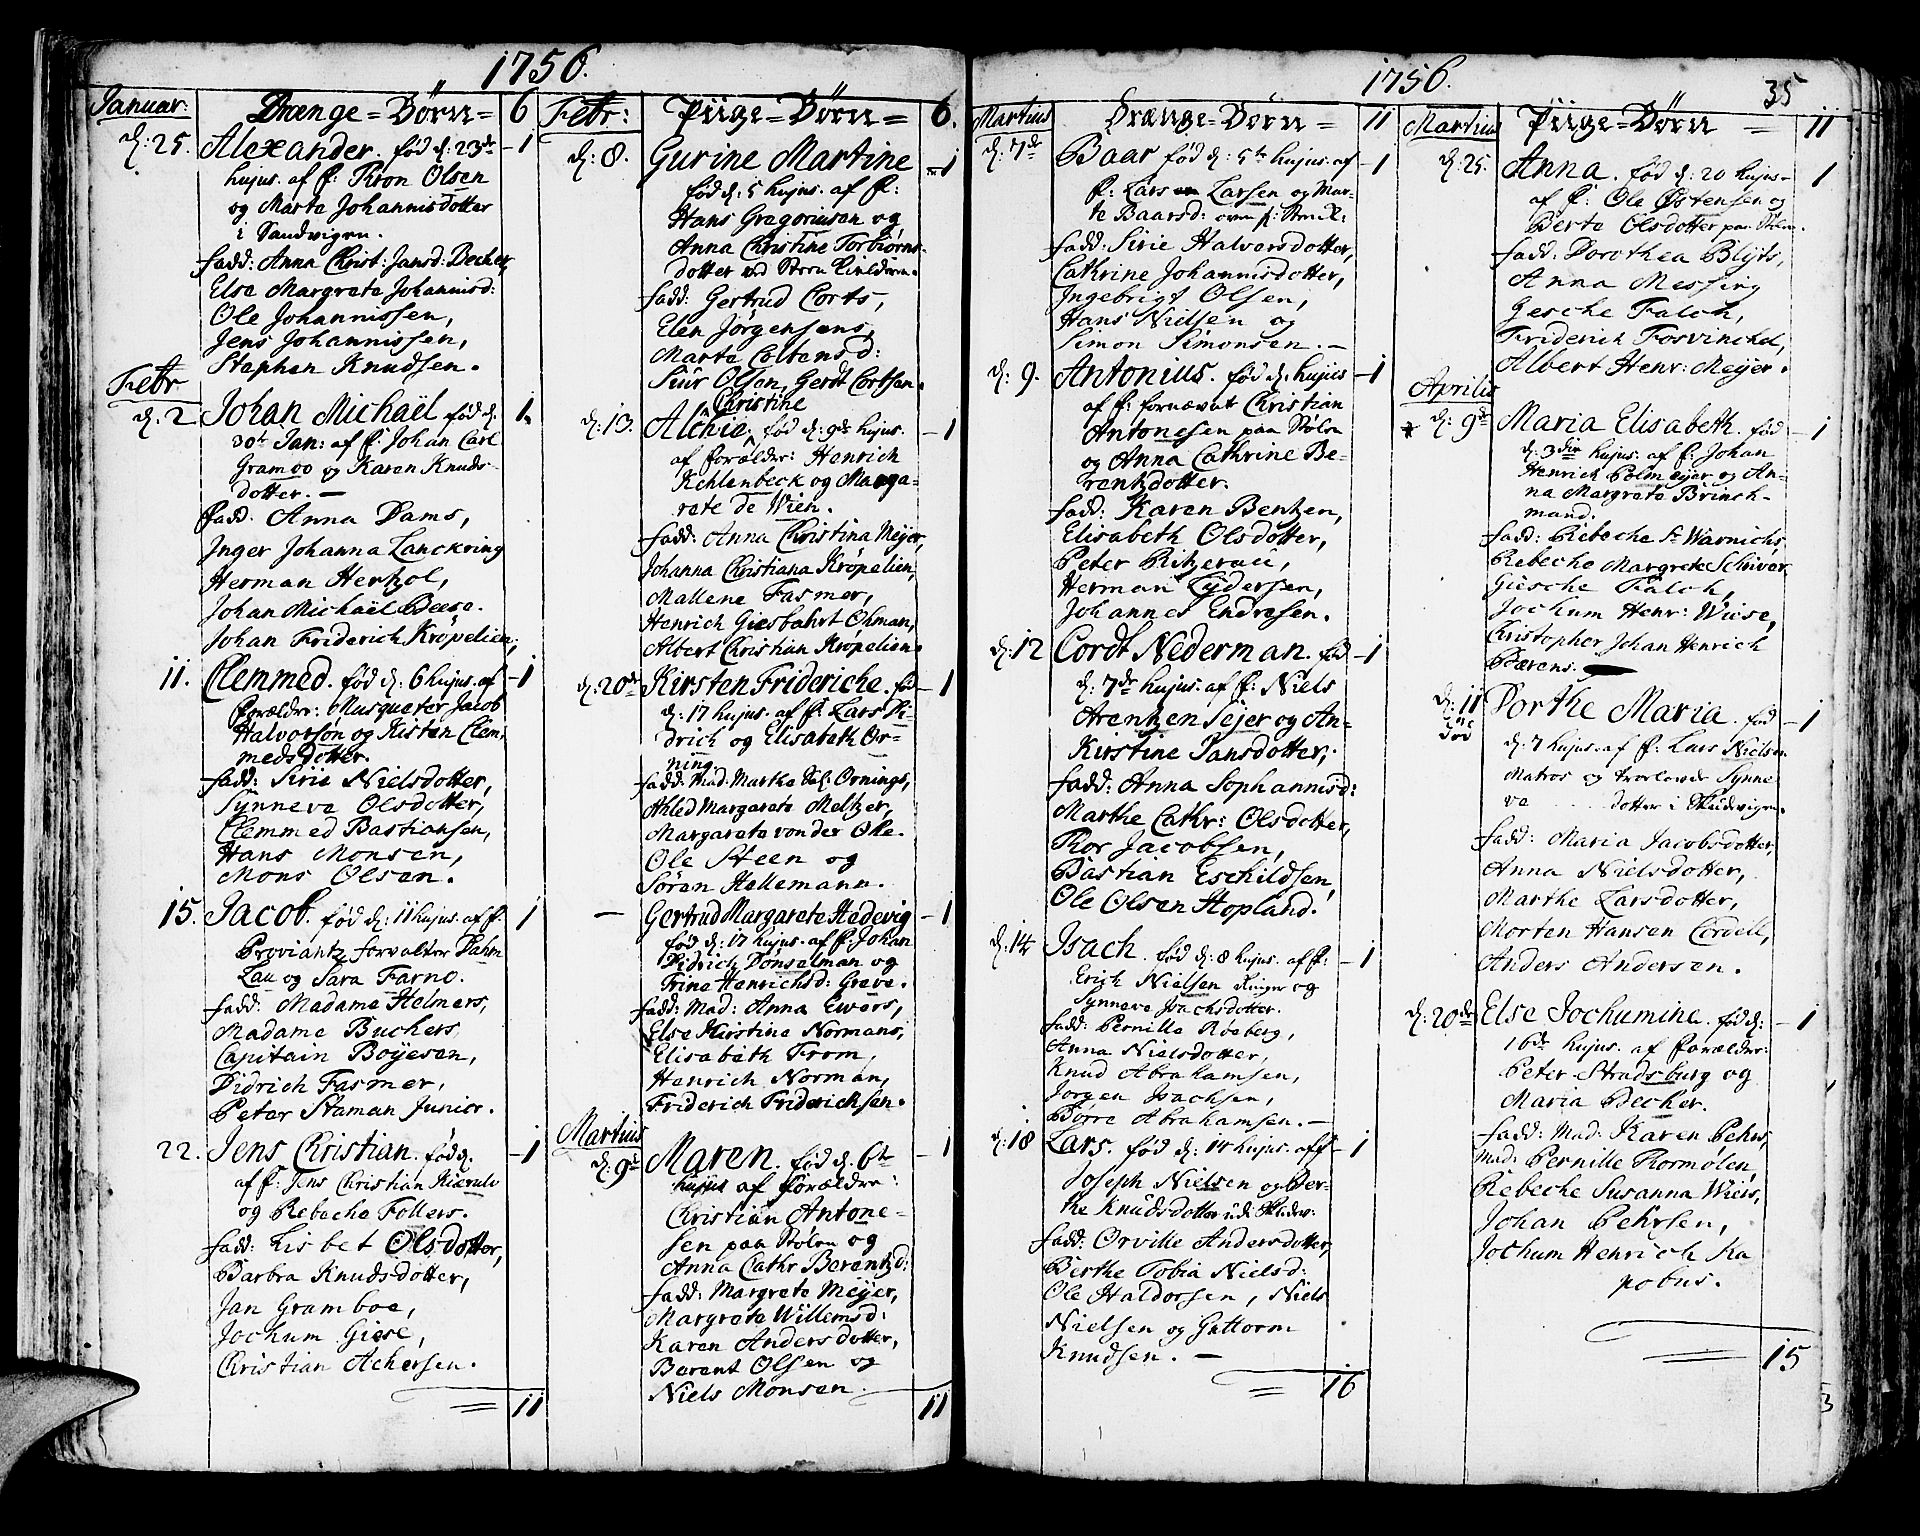 1756.
Januar: Drænge=Börn= 6
d: 25. Alexander. fød d: 23de -1
hujus. af f: Tron Olsen
og Marta Johannisdotter
i Sandvigen.
fadd: Anna Christ: Jansd: Becher,
Else Margreta Johannisd:
Ole Johannissen,
Jens Johannissen,
Stephen Knudsen.
Febr
d: 2 Johan Michaël fød d. 1
30te Jan: af f: Johan Carl
Gramoo og Karen Knuds-
dotter. —
fadd. Anna Dams,
Inger Johanna Lanckring
Herman Hertzol,
Johan Michaël Beese.
Johan Friderich Kröpelien;
11. Clemmed. fød d: 6 hujus. af -1
forældre: Musqueter Jacob
Halvorsøn og Kisten Clem,
medsdotter.
fadd: Sirie Nielsdotter,
Synneva Olsdotter,
Clemmed Bastiansen,
Hans Monsen,
Mons Olsen.
15. Jacob. fød d: 11 hujus. af f. 1
Proviantz forvalter Dahm
Lau og Sara Farno.
fadd: Madame Helmers,
Madame Buchers,
Capitain Boyesen,
Didrich Fasmer,
Peter Staman Junior.
22. Jens Christian. fød d. -1
af f: Jens Christian Kierulv
og Rebecha Follers.
fadd: Lisbet Olsdotter,
Barbra Knudsdotter,
Jan Gramboe,
Jochum Giese,
Christian Achersen.
11
Febr: Piige=Börn= 6.
d: 8. Gurine Martine -1
fød d: 5 hujus. af f:
Hans Gregoriusen og
Anna Christine Torbiørns
dotter ved Store Kirldren.
fadd: Gertrud Corts,
Elen Jörgensens,
Marta Coltensd:
Siur Olsen, Gerdt Cortsen.
Christine
d: 13. Alchie. fød d: 9de hujus. -1
af forældre: Henrich
Kehlenbeck og Marga-
rete de Wien.
fadd: Anna Christina Meyer,
Johanna Christiana Kröpelien,
Mallene Fasmer,
Henrich Giesbahrt Ohman,
Albert Christian Kröpelien.
d: 20de Kirsten Frideriche. fød -1
d: 17 hujus. af f: Lars Di-
drich og Elisabeth Or-
ning.
fadd: Mad: Martha Sal: Ornings,
Ahled Margareta Meltzer,
Margareta von der Ohe.
Ole Steen og
Sören Hallemann.
— Gertrud Margareta Hedevig -1
fød d: 17 hujus. af f: Johan
Didrich Donselman og
Trine Henrichsd: Greve.
fadd: Mad: Anna Ewers,
Else Kirstine Normans,
Elisabeth From,
Henrich Norman,
Friderich Friderichsen.
Martius
d: 9de Maren. fød d. 6te 1
hujus af forældre:
Christian Antone-
sen paa Stolen og
Anna Cathr Berentzd:
fadd: Margreta Meyer,
Margreta Willemsd:
Karen Andersdotter,
Berent Olsen og
Niels Monsen.
11
1756. 35
Martius Drænge=Börn= 11
d: 7de Baar fød d: 5te hujus. af -1
f: Lars Larsen og Mar-
te Baarsd: oven f: Stenk:
fadd: Sirie Halvorsdotter,
Cathrine Johannisdotter,
Ingebrigt Olsen,
Hans Nielsen og
Simon Simonsen. —
d: 9. Antonius. fød d: hujus -1
af f: fornævnt Christian
Antonesen paa Stolen
og Anna Cathrine Be-
rentzdotter.
fadd: Karen Bentzen,
Elisabeth Olsdotter,
Peter Ritzerau,
Herman Lydersen,
Johannes Endresen.
d: 12 Cordt Nederman. fød -1
d: 7de hujus. af f: Niels
Arentzen Sejer og An-
Kirstine Jansdotter,
fadd: Anna Sophannisd:
Marthe Cathr: Olsdotter,
Thor Jacobsen,
Bastian Eschildsen,
Ole Olsen Hopland.
d: 14 Isach. fød d: 8 hujus. af f: -1
Erich Nielsen Ringer og
Synneve Isachsdotter.
fadd: Pernille Roeberg,
Anna Nielsdotter,
Knud Abrahamsen,
Jorgen Isachsen,
Börre Abrahamsen. —
d: 18 Lars. fød d: 14 hujus. af f -1
Joseph Nielsen og Ber-
the Knudsdotter
fadd: Orville Andersdotter,
Berthe Tobia Nielsd:
Ole Haldorsen, Niels
Nielsen og Guttorm
Knudsen. —
16
Martius Piige=Börn = 11
d: 25. Anna. fød d: 20 hujus- 1
af f: Ole Østensen og
Berte Olsdotter paa Stolen.
fadd: Dorothea Blyts,
Anna Messing
Gesche Falch,
Friderich Forvinchel,
Albert Henr: Meyer.
Aprilis
d: 9de Maria Elisabeth. fød -1
d: 3die hujus. af f: Johan
Henrich Polmeyer og An-
na Margreta Brinch-
mand.
fadd: Rebeche Sl Warnichs,
Rebecha Margreta Schriver,
Giesche Falch,
Jochum Henr: Wiese,
Christopher Johan Henrich
Bærens.
d: 11 Dorthe Maria. fød -1
d. 7 hujus. af f: Lars Nielsen
Matros og trolovede Synne
ve . . . . dotter i Skudvigen.
fadd: Maria Jacobsdotter,
Anna Nielsdotter,
Marthe Larsdotter,
Morten Hansen Cordell,
Anders Andersen.
d: 20de Else Jochumine. fød d: -1
16de hujus. af forældre:
Peter Stradsburg og
Maria Becher.
fadd: Mad: Karen Pehrs,
Mad: Pernille Thormölen,
Rebeche Susanna Wiers,
Johan Pehrsen,
Jochum Henrich Ka
pobus.
15